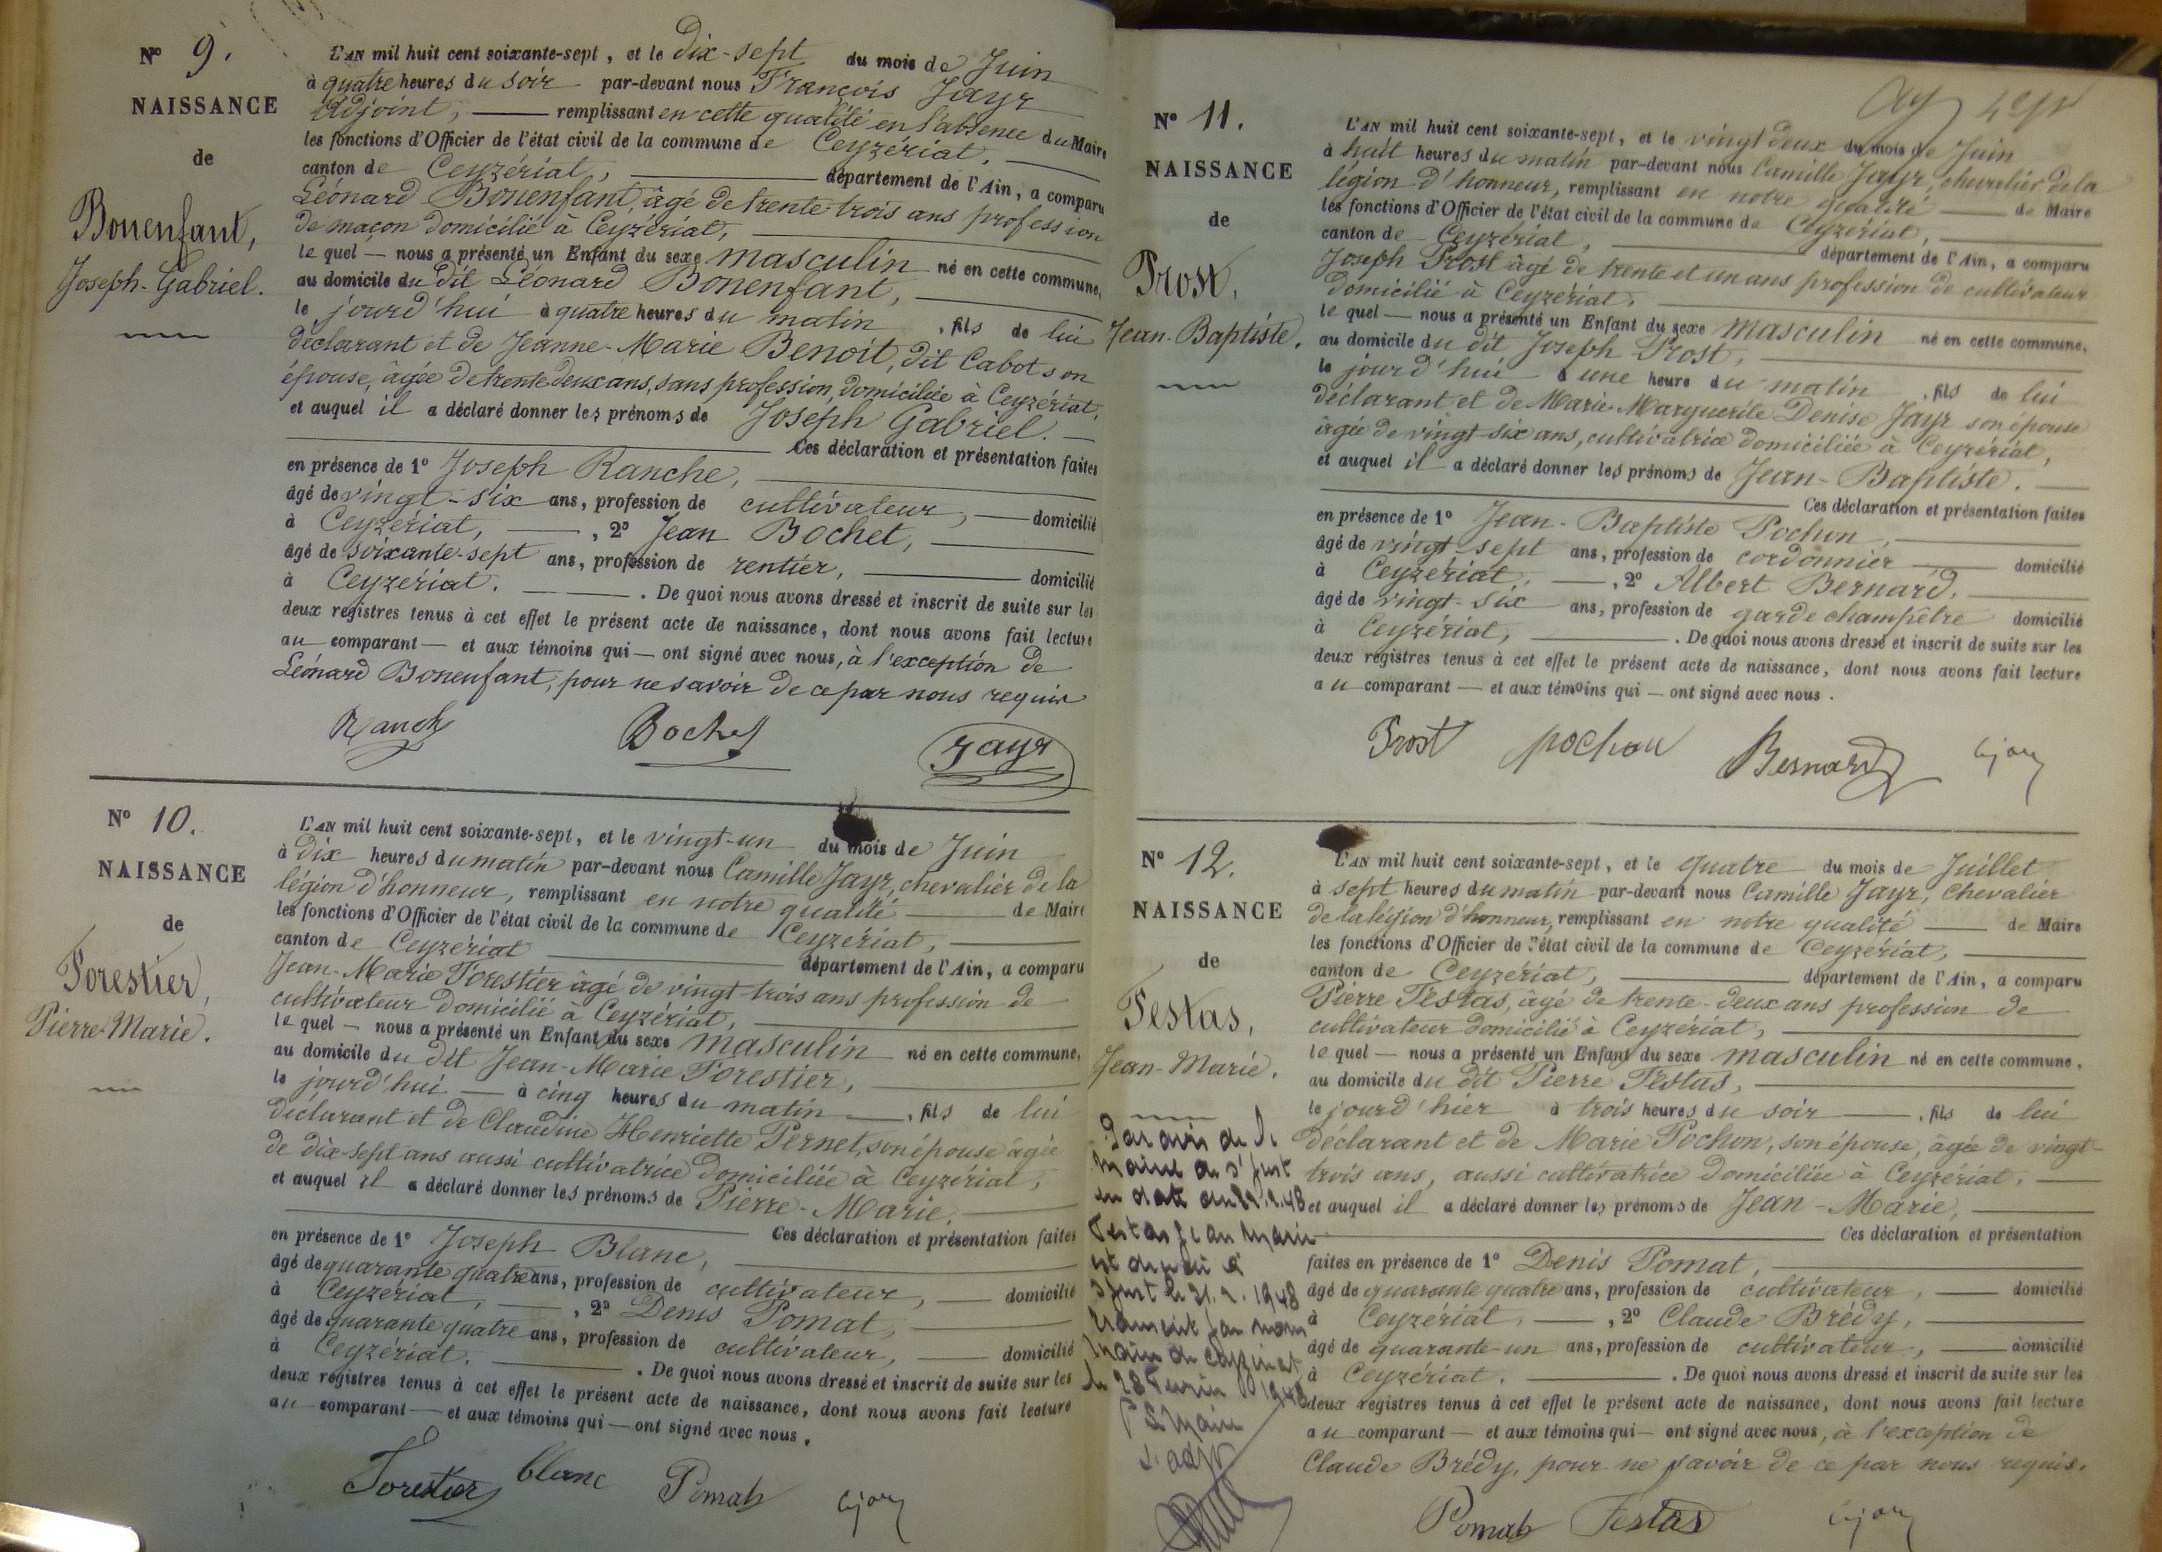 Nº 9.
NAISSANCE
de
Bonenfant,
Joseph-Gabriel.
L'AN mil huit cent soixante-sept, et le dix-sept du mois de Juin
à quatre heures du soir par-devant nous François Jayr
Adjoint, remplissant en cette qualité en l'absence du Maire
les fonctions d'Officier de l'état civil de la commune de Ceyzériat.
canton de Ceyzériat, département de l'Ain, a comparu
Léonard Bonenfant, âgé de trente-trois ans profession
de maçon domicilié à Ceyzériat,
lequel nous a présenté un Enfant du sexe masculin né en cette commune,
au domicile du dit Léonard Bonenfant,
le jourd'hui à quatre heures du matin, fils de lui
déclarant et de Jeanne-Marie Benoit, dit Cabot son
épouse, âgée de trente deux ans, sans profession, domiciliée à Ceyzériat,
et auquel il a déclaré donner les prénoms de Joseph Gabriel.
Ces déclaration et présentation faites
en présence de 1º Joseph Ranche,
âgé de vingt-six ans, profession de cultivateur, domicilié
à Ceyzériat, , 2º Jean Bochet,
âgé de soixante-sept ans, profession de rentier, domicilié
à Ceyzériat. . De quoi nous avons dressé et inscrit de suite sur les
deux registres tenus à cet effet le présent acte de naissance, dont nous avons fait lecture
au comparant et aux témoins qui ont signé avec nous, à l'exception de
Léonard Bonenfant, pour ne savoir de ce par nous requis
Ranch Bochet Jayr
Nº 10.
NAISSANCE
de
Forestier,
Pierre-Marie.
L'AN mil huit cent soixante-sept, et le vingt-un du mois de Juin
à dix heures du matin par-devant nous Camille Jayr, chevalier de la
légion d'honneur, remplissant en notre qualité de Maire
les fonctions d'Officier de l'état civil de la commune de Ceyzériat,
canton de Ceyzériat département de l'Ain, a comparu
Jean-Marie Forestier âgé de vingt trois ans profession de
cultivateur domicilié à Ceyzériat,
lequel nous a présenté un Enfant du sexe masculin né en cette commune,
au domicile du dit Jean-Marie Forestier,
le jourd'hui à cinq heures du matin, fils de lui
déclarant et de Claudine Henriette Pernet, son épouse âgée
de dix-sept ans aussi cultivatrice domiciliée à Ceyzériat,
et auquel il a déclaré donner les prénoms de Pierre-Marie.
Ces déclaration et présentation faites
en présence de 1º Joseph Blanc,
âgé de quarante quatre ans, profession de cultivateur, domicilié
à Ceyzériat, , 2º Denis Pomat,
âgé de quarante quatre ans, profession de cultivateur, domicilié
à Ceyzériat. . De quoi nous avons dressé et inscrit de suite sur les
deux registres tenus à cet effet le présent acte de naissance, dont nous avons fait lecture
au comparant et aux témoins qui ont signé avec nous.
Forestier blanc Pomat
Nº 11.
NAISSANCE
de
Prost,
Jean-Baptiste.
L'AN mil huit cent soixante-sept, et le vingt deux du mois de Juin
à huit heures du matin par-devant nous Camille Jayr, chevalier de la
légion d'honneur, remplissant en notre qualité de Maire
les fonctions d'Officier de l'état civil de la commune de Ceyzériat,
canton de Ceyzériat, département de l'Ain, a comparu
Joseph Prost âgé de trente et un ans profession de cultivateur
domicilié à Ceyzériat.
lequel nous a présenté un Enfant du sexe masculin né en cette commune,
au domicile du dit Joseph Prost,
le jourd'hui à une heure du matin, fils de lui
déclarant et de Marie-Marguerite Denise Jayr son épouse
âgée de vingt-six ans, cultivatrice domiciliée à Ceyzériat,
et auquel il a déclaré donner les prénoms de Jean-Baptiste.
Ces déclaration et présentation faites
en présence de 1º Jean-Baptiste Pochon,
âgé de vingt-sept ans, profession de cordonnier domicilié
à Ceyzériat, , 2º Albert Bernard,
âgé de vingt-six ans, profession de garde champêtre domicilié
à Ceyzériat, . De quoi nous avons dressé et inscrit de suite sur les
deux registres tenus à cet effet le présent acte de naissance, dont nous avons fait lecture
au comparant et aux témoins qui ont signé avec nous.
Prost pochon Bernard
Nº 12.
NAISSANCE
de
Testas,
Jean-Marie.
Par avis de
en date du
Testas Jean Marie
est décédé à
St Just le 21. 2. 1948
le 28 Février 1948
L'AN mil huit cent soixante-sept, et le quatre du mois de Juillet
à sept heures du matin par-devant nous Camille Jayr, Chevalier
de la légion d'honneur, remplissant en notre qualité de Maire
les fonctions d'Officier de l'état civil de la commune de Ceyzériat,
canton de Ceyzériat, département de l'Ain, a comparu
Pierre Testas, âgé de trente-deux ans profession de
cultivateur domicilié à Ceyzériat,
lequel nous a présenté un Enfant du sexe masculin né en cette commune,
au domicile du dit Pierre Testas,
le jourd'hier à trois heures du soir, fils de lui
déclarant et de Marie Pochon, son épouse, âgée de vingt-
trois ans, aussi cultivatrice domiciliée à Ceyzériat.
et auquel il a déclaré donner les prénoms de Jean-Marie,
Ces déclaration et présentation
faites en présence de 1º Denis Pomat,
âgé de quarante quatre ans, profession de cultivateur, domicilié
à Ceyzériat, , 2º Claude Brédy,
âgé de quarante-un ans, profession de cultivateur, domicilié
à Ceyzériat. . De quoi nous avons dressé et inscrit de suite sur les
deux registres tenus à cet effet le présent acte de naissance, dont nous avons fait lecture
au comparant et aux témoins qui ont signé avec nous, à l'exception de
Claude Brédy, pour ne savoir de ce par nous requis.
Pomat Testas